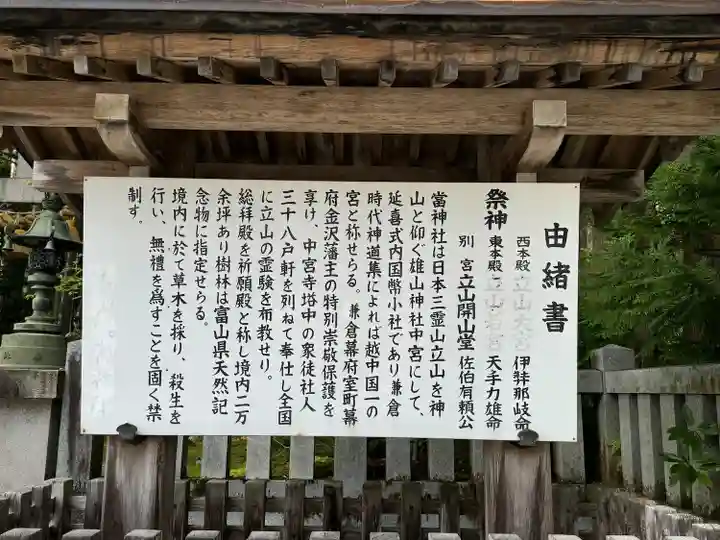 由緒書
西本殿 立山大宮 伊弉那岐命
祭神 東本殿 立山若宮 天手力雄命
別宮 立山開山堂 佐伯有頼公
當神社は日本三霊山立山を神
山と仰ぐ雄山神社中宮にして、
延喜式内国幣小社であり兼倉
時代神道集によれば越中国一の
宮と称せらる。兼倉幕府室町幕
府金沢藩主の特別崇敬保護を
享け、中宮寺塔中の衆徒社人
三十八戸軒を列ねて奉仕し全国
に立山の霊験を布教せり。
総拜殿を祈願殿と称し境内二万
余坪あり樹林は富山県天然記
念物に指定せらる。
境内に於て草木を採り、殺生を
行い、無禮を爲すことを固く禁
制す.